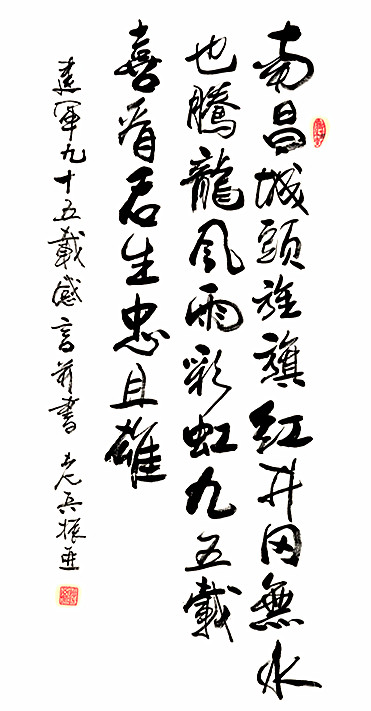 南昌城頭旌旗紅井冈無水
也騰龍风雨彩虹九五載
喜看君生忠且雄
建軍九十五載感言并書 老兵振亚